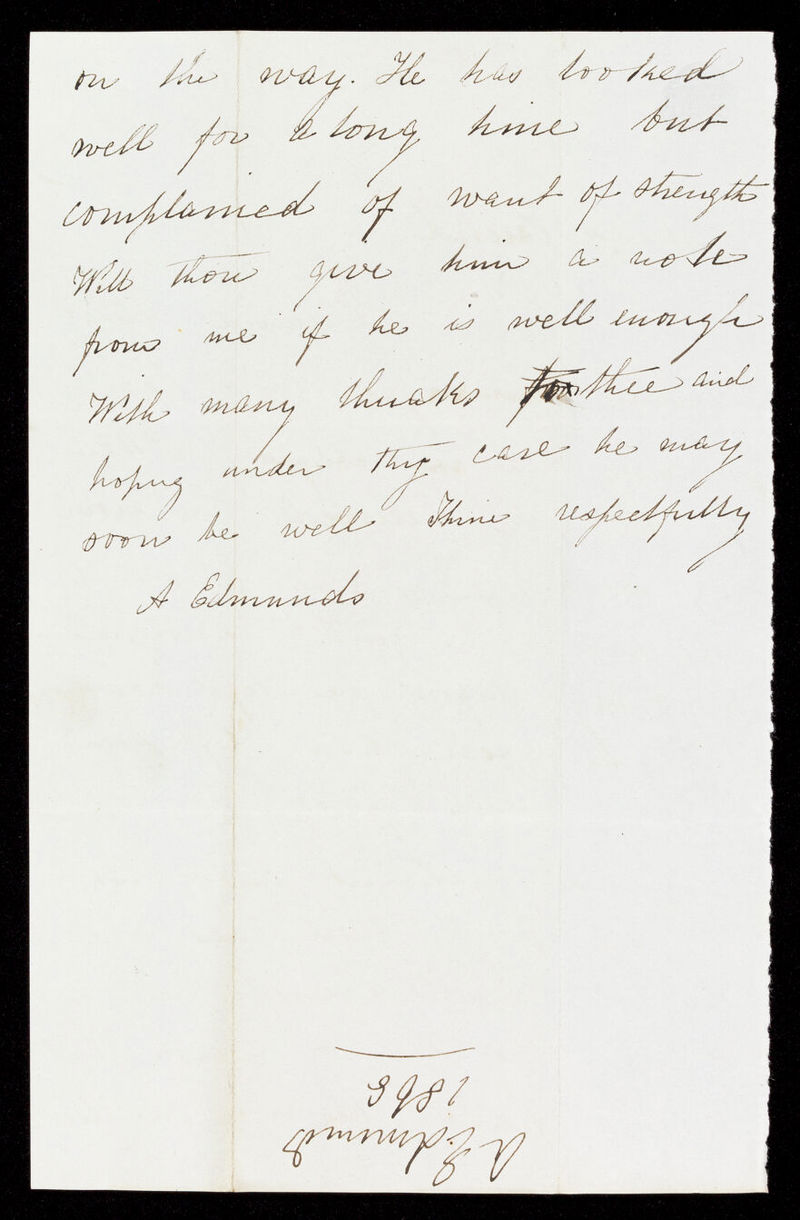 on the way. He has looked
well for a long time but
complained of want of strength
Will thou give him a note
from me if he is well enough
With many thanks thee and
hoping under thy care he may
soon be well Thine respectfully
A Edmunds
A. Edmunds